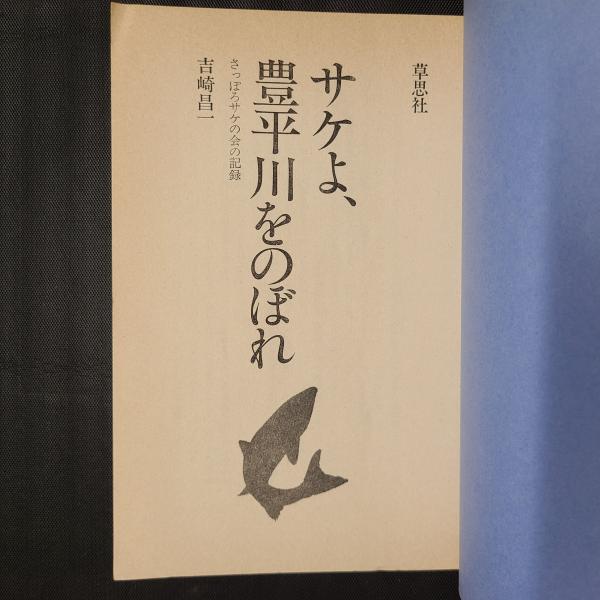 草思社
サケよ、
豊平川をのぼれ
さっぽろサケの会の記録
吉崎昌一